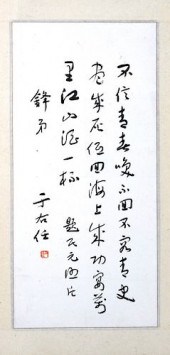 不信青春喚不回不容青史
盡成灰低回海上成功宴萬
里江山酒一杯 題民元照片
鋒弟
于右任